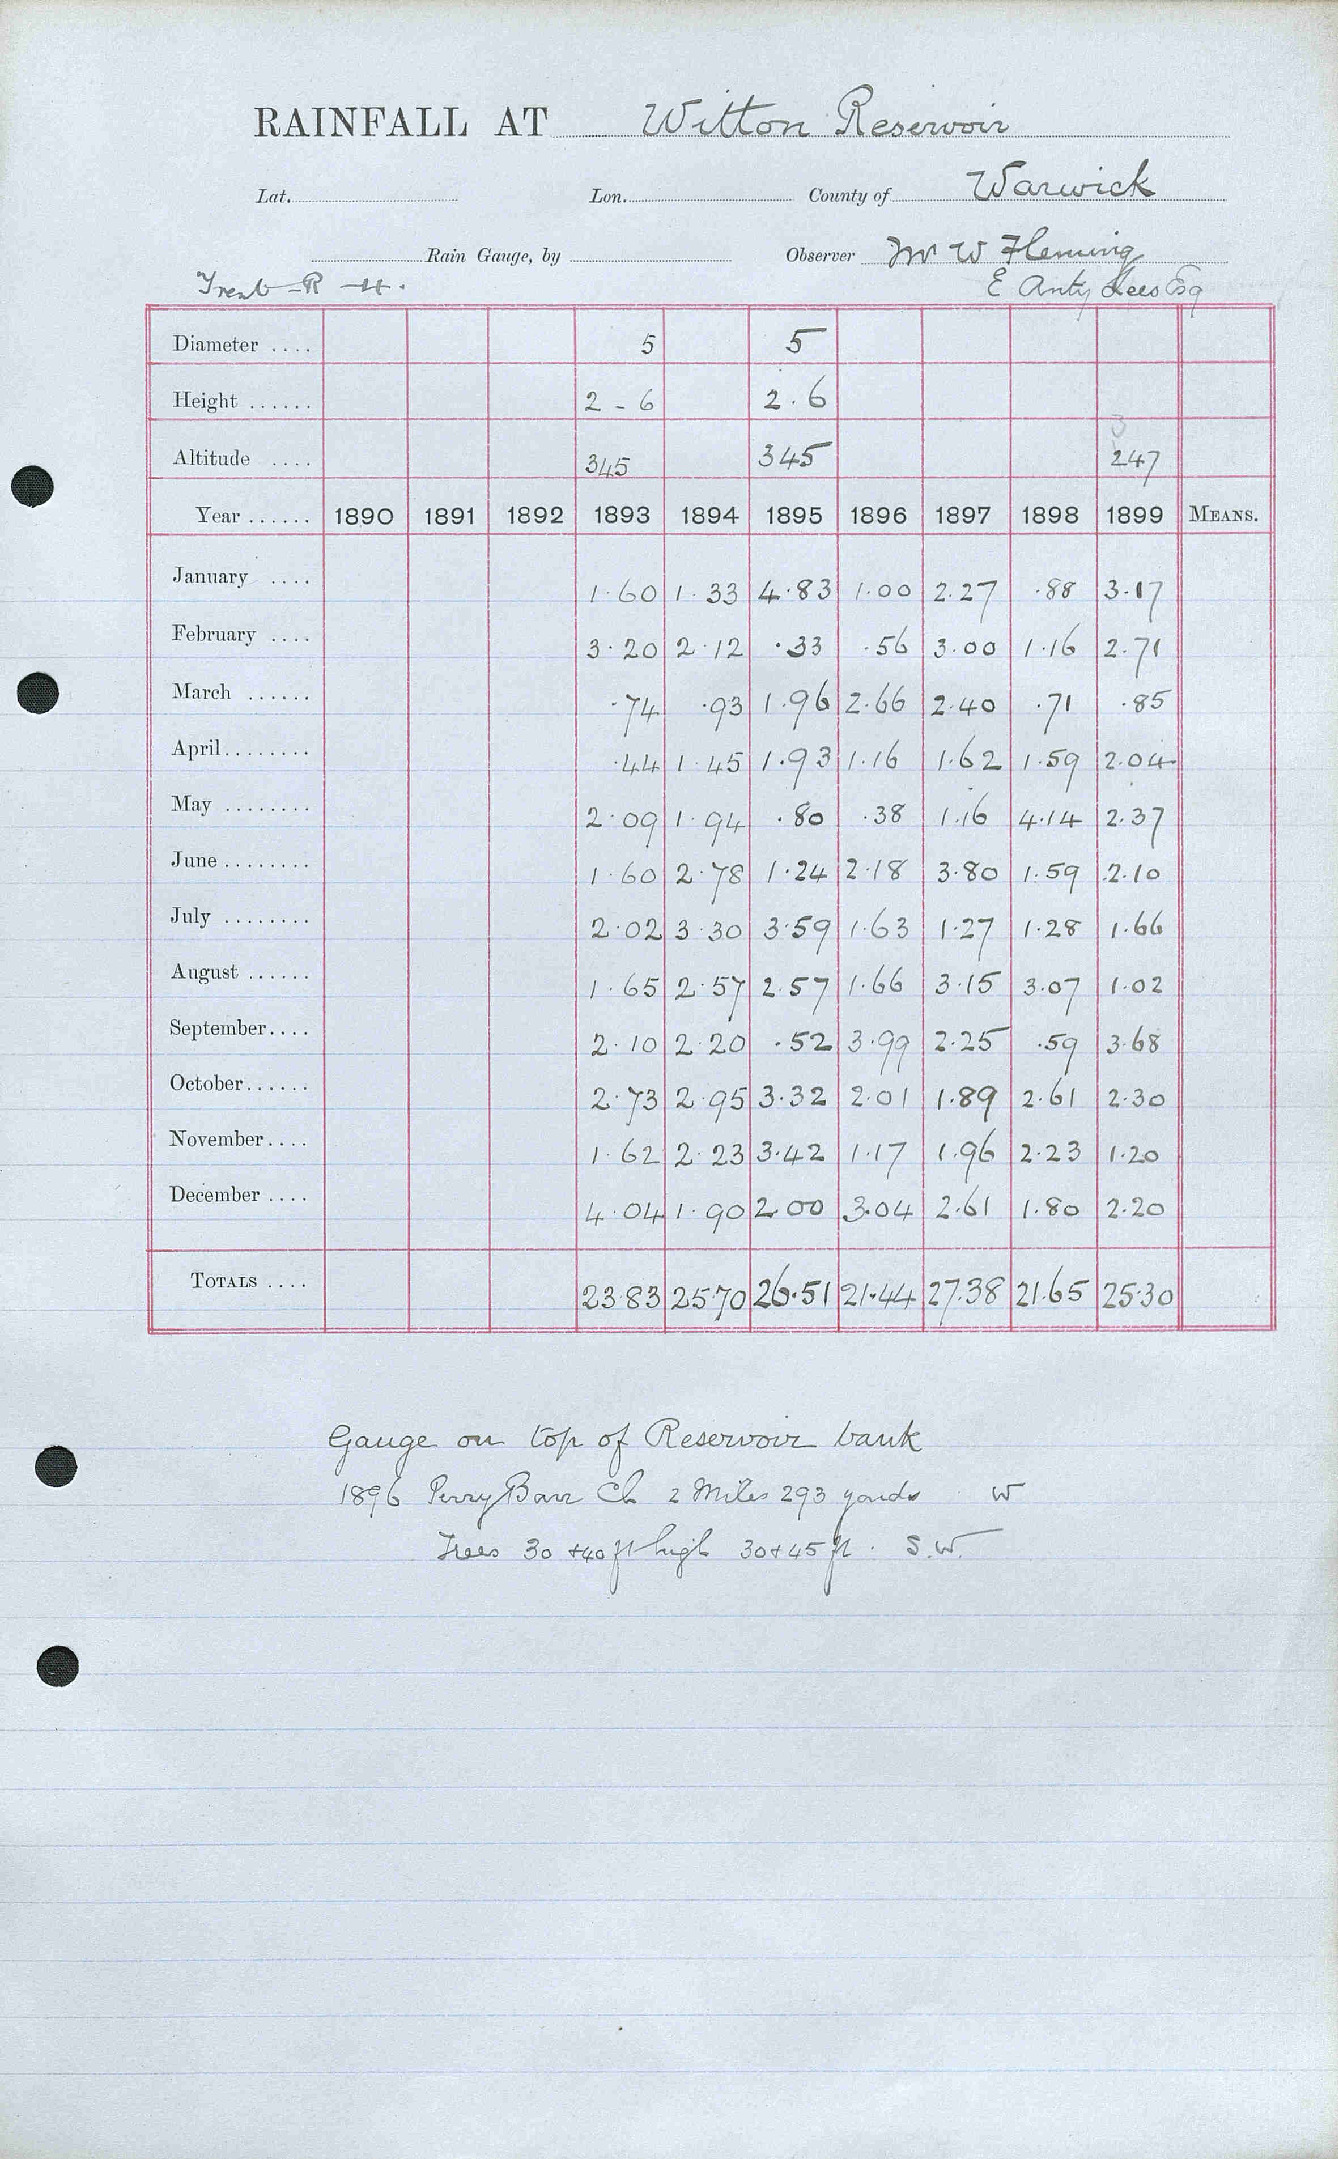 RAINFALL AT Witton Reservoir
Lat. Lon. County of Warwick
Rain Gauge, by Observer Mr W Fleming
Trent-R -4. E Anty Lees Esq
Diameter .... 5 5
Height ...... 2-6 2.6
3
Altitude .... 345 345 247
Year ...... 1890 1891 1892 1893 1894 1895 1896 1897 1898 1899 MEANS.
January .... 1.60 1.33 4.83 1.00 2.27 .88 3.17
February .... 3.20 2.12 .33 .56 3.00 1.16 2.71
March ...... .74 .93 1.96 2.66 2.40 .71 .85
April........ .44 1.45 1.93 1.16 1.62 1.59 2.04
May ........ 2.09 1.94 .80 .38 1.16 4.14 2.37
June ........ 1.60 2.78 1.24 2.18 3.80 1.59 2.10
July ........ 2.02 3.30 3.59 1.63 1.27 1.28 1.66
August ...... 1.65 2.57 2.57 1.66 3.15 3.07 1.02
September.... 2.10 2.20 .52 3.99 2.25 .59 3.68
October...... 2.73 2.95 3.32 2.01 1.89 2.61 2.30
November.... 1.62 2.23 3.42 1.17 1.96 2.23 1.20
December .... 4.04 1.90 2.00 3.04 2.61 1.80 2.20
TOTALS .... 23.83 25.70 26.51 21.44 27.38 21.65 25.30
Gauge on top of Reservoir bank
1896 Perry Barr Ch 2 Miles 293 yards W
Trees 30 +40 ft high 30+45 ft. S.W.